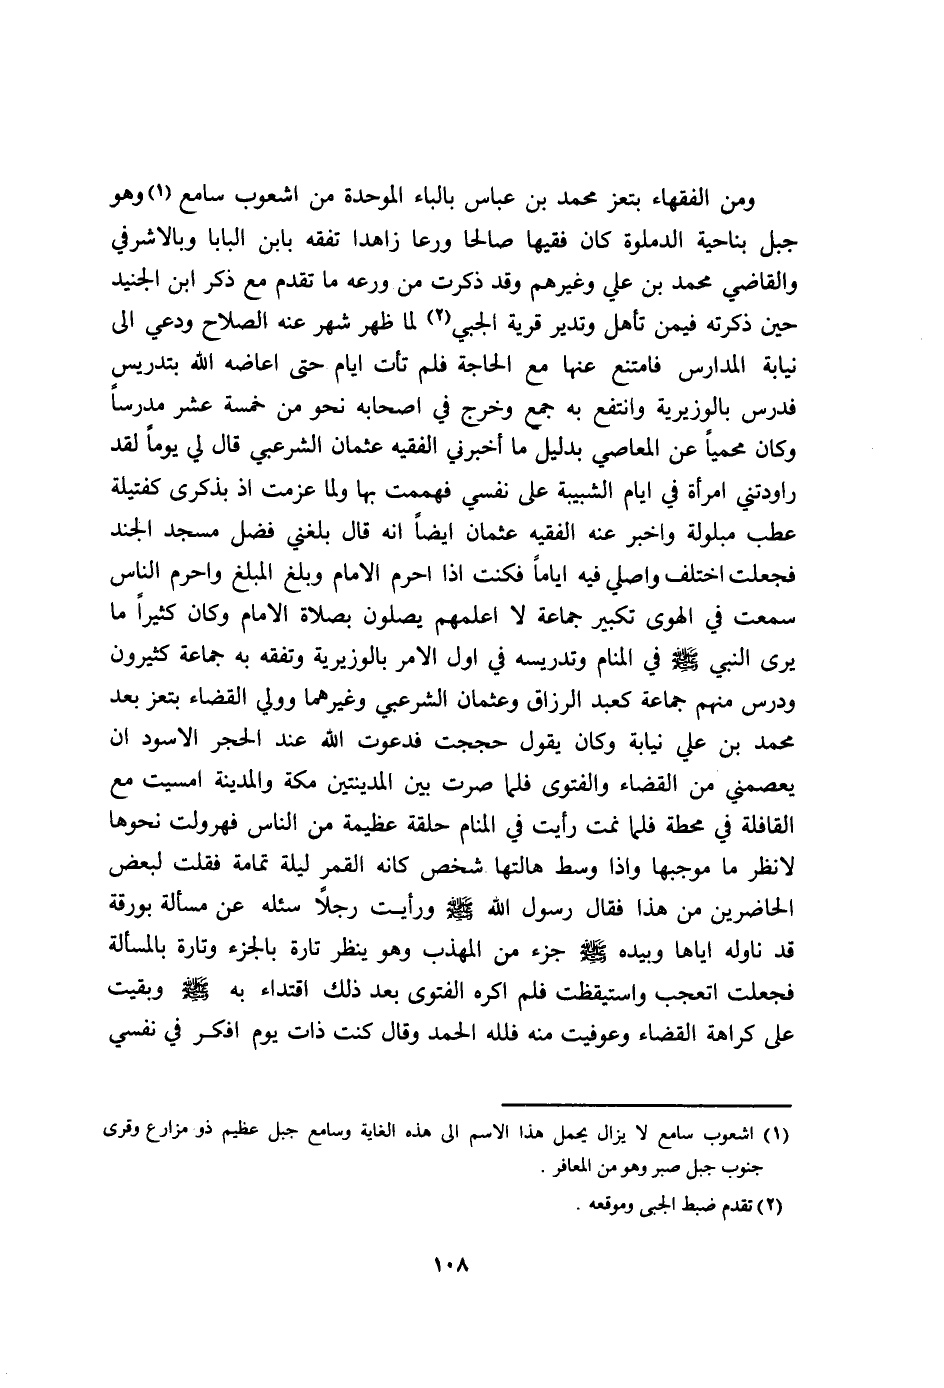 ومن الفقهاء بتعز محمد بن عباس بالباء الموحدة من اشعوب سامع (١) وهو
جبل بناحية الدملوة كان فقيها صالحا ورعا زاهدا تفقه بابن البابا وبالاشرفي
والقاضي محمد بن علي وغيرهم وقد ذكرت من ورعه ما تقدم مع ذكر ابن الجنيد
حين ذكرته فيمن تأهل وتدير قرية الجبي (٢) لما ظهر شهر عنه الصلاح ودعي الى
نيابة المدارس فامتنع عنها مع الحاجة فلم تأت ايام حتى اعاضه الله بتدريس
فدرس بالوزيرية وانتفع به جمع وخرج في اصحابه نحو من خمسة عشر مدرساً
وكان محمياً عن المعاصي بدليل ما أخبرني الفقيه عثمان الشرعبي قال لي يوماً لقد
راودتني امرأة في ايام الشبيبة على نفسي فهممت بها ولما عزمت اذ بذكرى كفتيلة
عطب مبلولة واخبر عنه الفقيه عثمان ايضاً انه قال بلغني فضل مسجد الجند
فجعلت اختلف واصلي فيه اياماً فكنت اذا احرم الامام وبلغ المبلغ واحرم الناس
سمعت في الهوى تكبير جماعة لا اعلمهم يصلون بصلاة الامام وكان كثيراً ما
يرى النبي ﷺ في المنام وتدريسه في اول الامر بالوزيرية وتفقه به جماعة كثيرون
ودرس منهم جماعة كعبد الرزاق وعثمان الشرعبي وغيرهما وولي القضاء بتعز بعد
محمد بن علي نيابة وكان يقول حججت فدعوت الله عند الحجر الاسود ان
يعصمني من القضاء والفتوى فلما صرت بين المدينتين مكة والمدينة امسيت مع
القافلة في محطة فلما نمت رأيت في المنام حلقة عظيمة من الناس فهرولت نحوها
لانظر ما موجبها واذا وسط هالتها شخص كانه القمر ليلة تمامة فقلت لبعض
الحاضرين من هذا فقال رسول الله ﷺ ورأيت رجلاً سئله عن مسألة بورقة
قد ناوله اياها وبيده ﷺ جزء من المهذب وهو ينظر تارة بالجزء وتارة بالمسألة
فجعلت اتعجب واستيقظت فلم اكره الفتوى بعد ذلك اقتداء به ﷺ وبقيت
على كراهة القضاء وعوفيت منه فلله الحمد وقال كنت ذات يوم افكر في نفسي
(١) اشعوب سامع لا يزال يحمل هذا الاسم الى هذه الغاية وسامع جبل عظيم ذو مزارع وقرى
جنوب جبل صبر وهو من المعافر .
(٢) تقدم ضبط الجبى وموقعه .
١٠٨